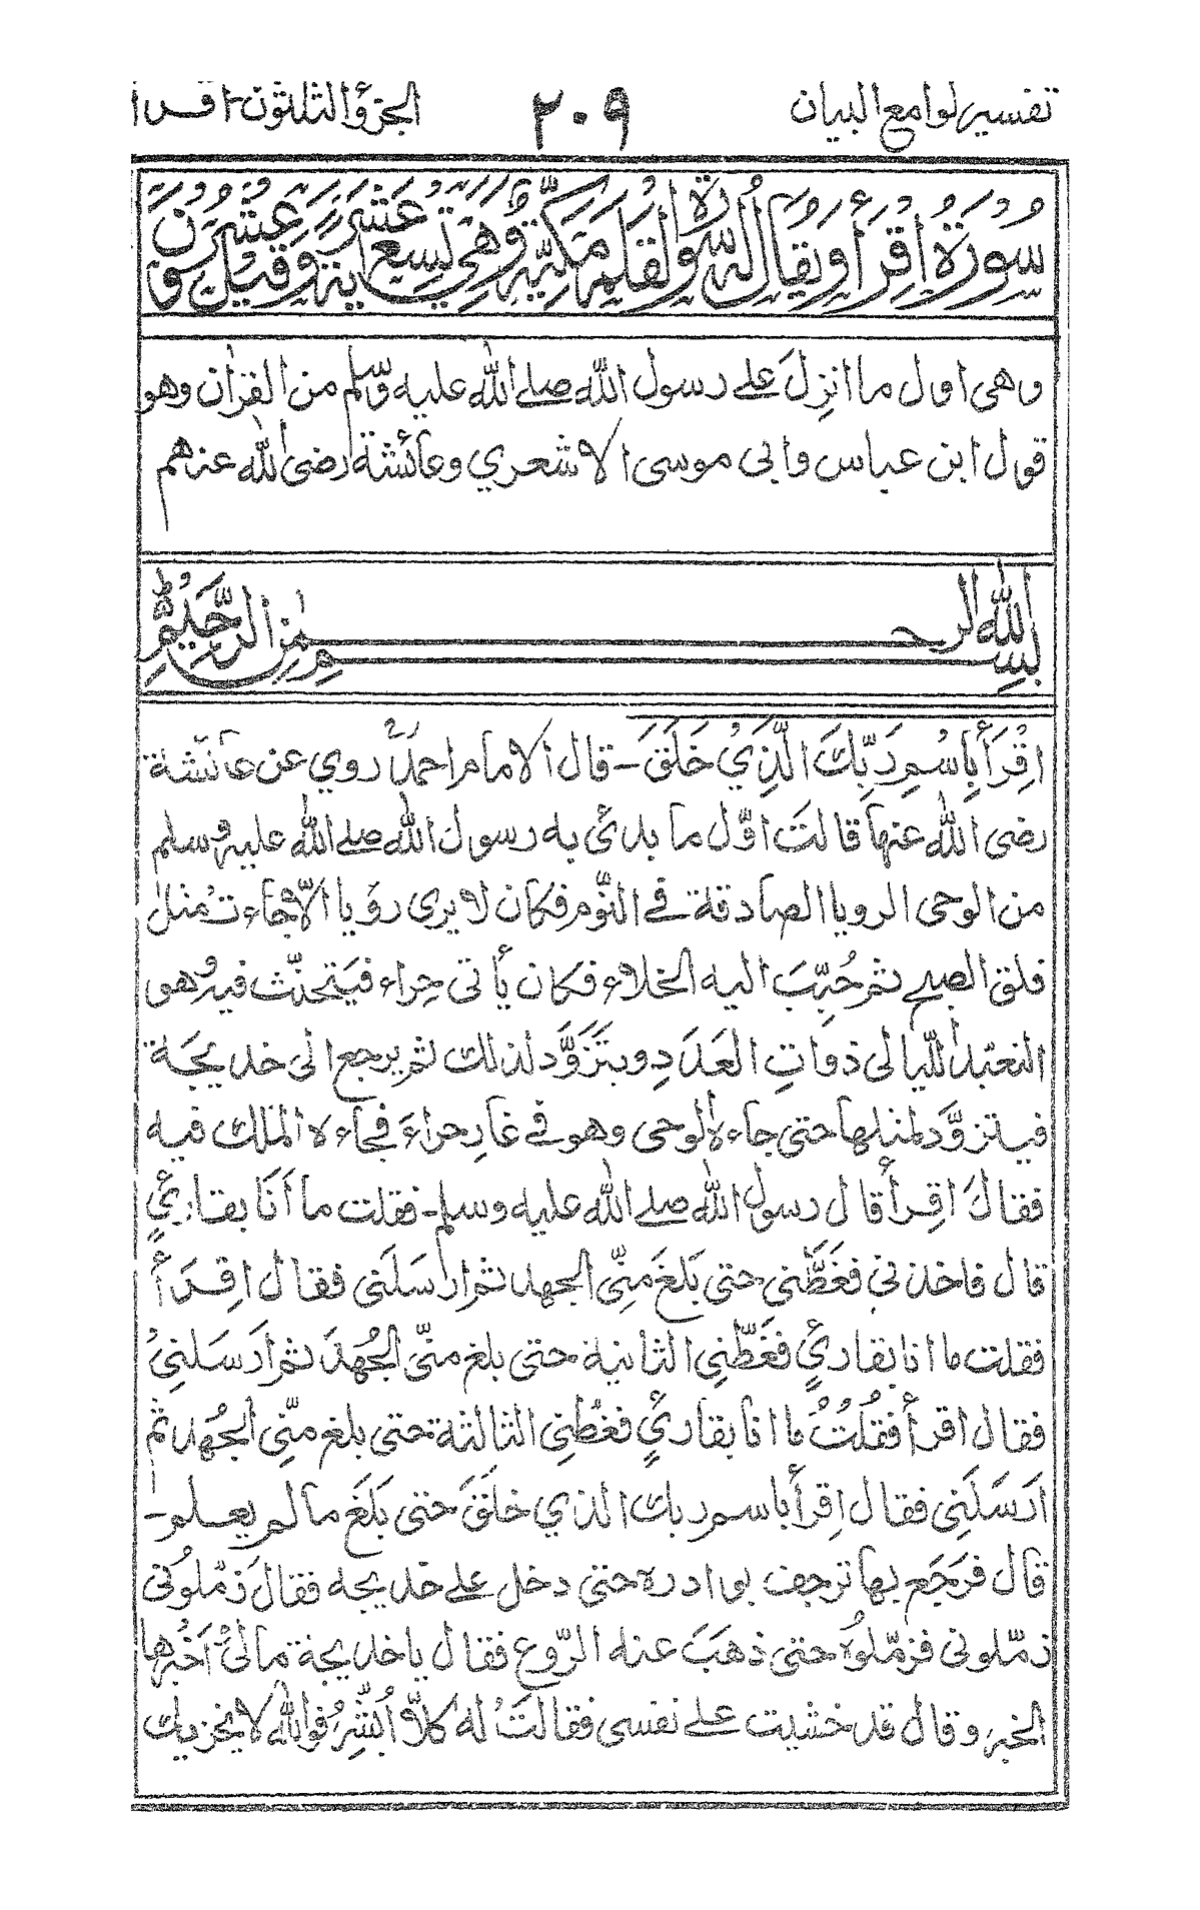 تفسير لوامع البيان ٢٠٩ الجزؤ الثلثون اقرا
سُورَةُ اقْرَأْ وَيُقَالُ لَهُ سُورَةُ القلم مَكِّيَّةٌ وَّهِيَ تِسْعَ عَشَرَةَ اٰيَةً وَقِيْلَ عِشْرُوْنَ
وهى اول ما انزِلَ علے رسول الله صلے الله عليه وسّلم من القرٰان وهو
قول ابن عباس وابى موسى الاشعري وعائشة رضى الله عنهم
بِسْمِ اللهِ الرحمٰن الرَّحِيْمِ
اِقْرَأْ بِاسْمِ رَبِّكَ الَّذِيْ خَلَقَ - قال الامام احمدُ روي عن عائشة
رضى الله عنها قالت اوّل ما بدئ به رسول الله صلے الله عليه وسلم
من الوحى الرويا الصادقة فے النّوم فكان لا يرى رؤيا الاّ جاءت مثل
فلق الصبح ثم حُبِّبَ اليه الخلاء فكان يأتى حِراء فيَتحنّث فيه وهو
التعبّد الليالى ذواتِ العَدَدِ ويتَزَوَّد لذلك ثم يرجع الى خديجَة
فيتزوَّد لمثلها حتى جاءه الوحى وهو فے غارِ حراءَ فجاءه الملك فيه
فقالَ اقِرأ قال رسول الله صلے الله عليه وسلم - فقلت ما أَنَا بقارئٍ
قال فاخذني فغَطَّنى حتى بَلغَ منِّى الجهد ثم ارسَلَنى فقال اقِرَأْ
فقلت ما انا بقارئٍ فغَطّنِى الثانية حتى بلغ منّى الجُهدَ ثم ارَسَلنِىْ
فقال اقرأ فقُلتُ ما انا بقارئٍ فغطّنِى الثالثة حتى بلغ منّى الجُهد ثم
ارَسَلَنِى فقال اقِرأ باسم ربك الذي خلقَ حتى بَلَغَ ما لم يعلم -
قال فرَجَع بها ترجف بوادره حتى دخل علے خديجه فقال زمّلوُنى
زمّلونى فزمّلوُه حتى ذهَبَ عنه الرّوع فقال يا خديجة مالىْ أخبرها
الخبر وقال قد خشيت علے نفسى فقالتْ له كلاّ اُبشِّرُ فوالله لا يخزيك